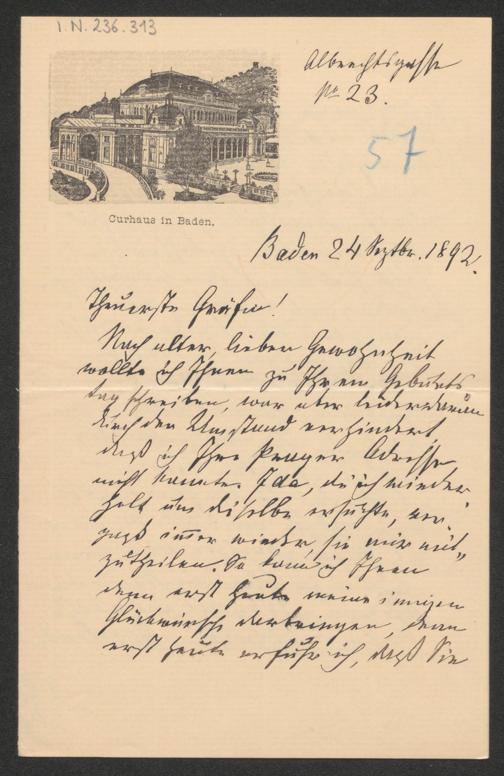 I.N. 236.313
Albrechtsgasse
No 23.
57
Curhaus in Baden.
Baden 24 Septbr. 1892.
Theuerste Gräfin!
Nach alter, lieben Gewohnheit
wollte ich Ihnen zu Ihrem Geburts
tag schreiben, war aber leider daran
durch den Umstand verhindert,
daß ich Ihre Prager Adresse
nicht kannte. Ida, die ich wieder
holt um dieselbe ersuchte, ver„
gaß immer wieder, sie mir mit„
zutheilen. So kann ich Ihnen
denn erst heute meine innigen
Glückwünsche darbringen, denn
erst heute erfuhr ich, daß Sie